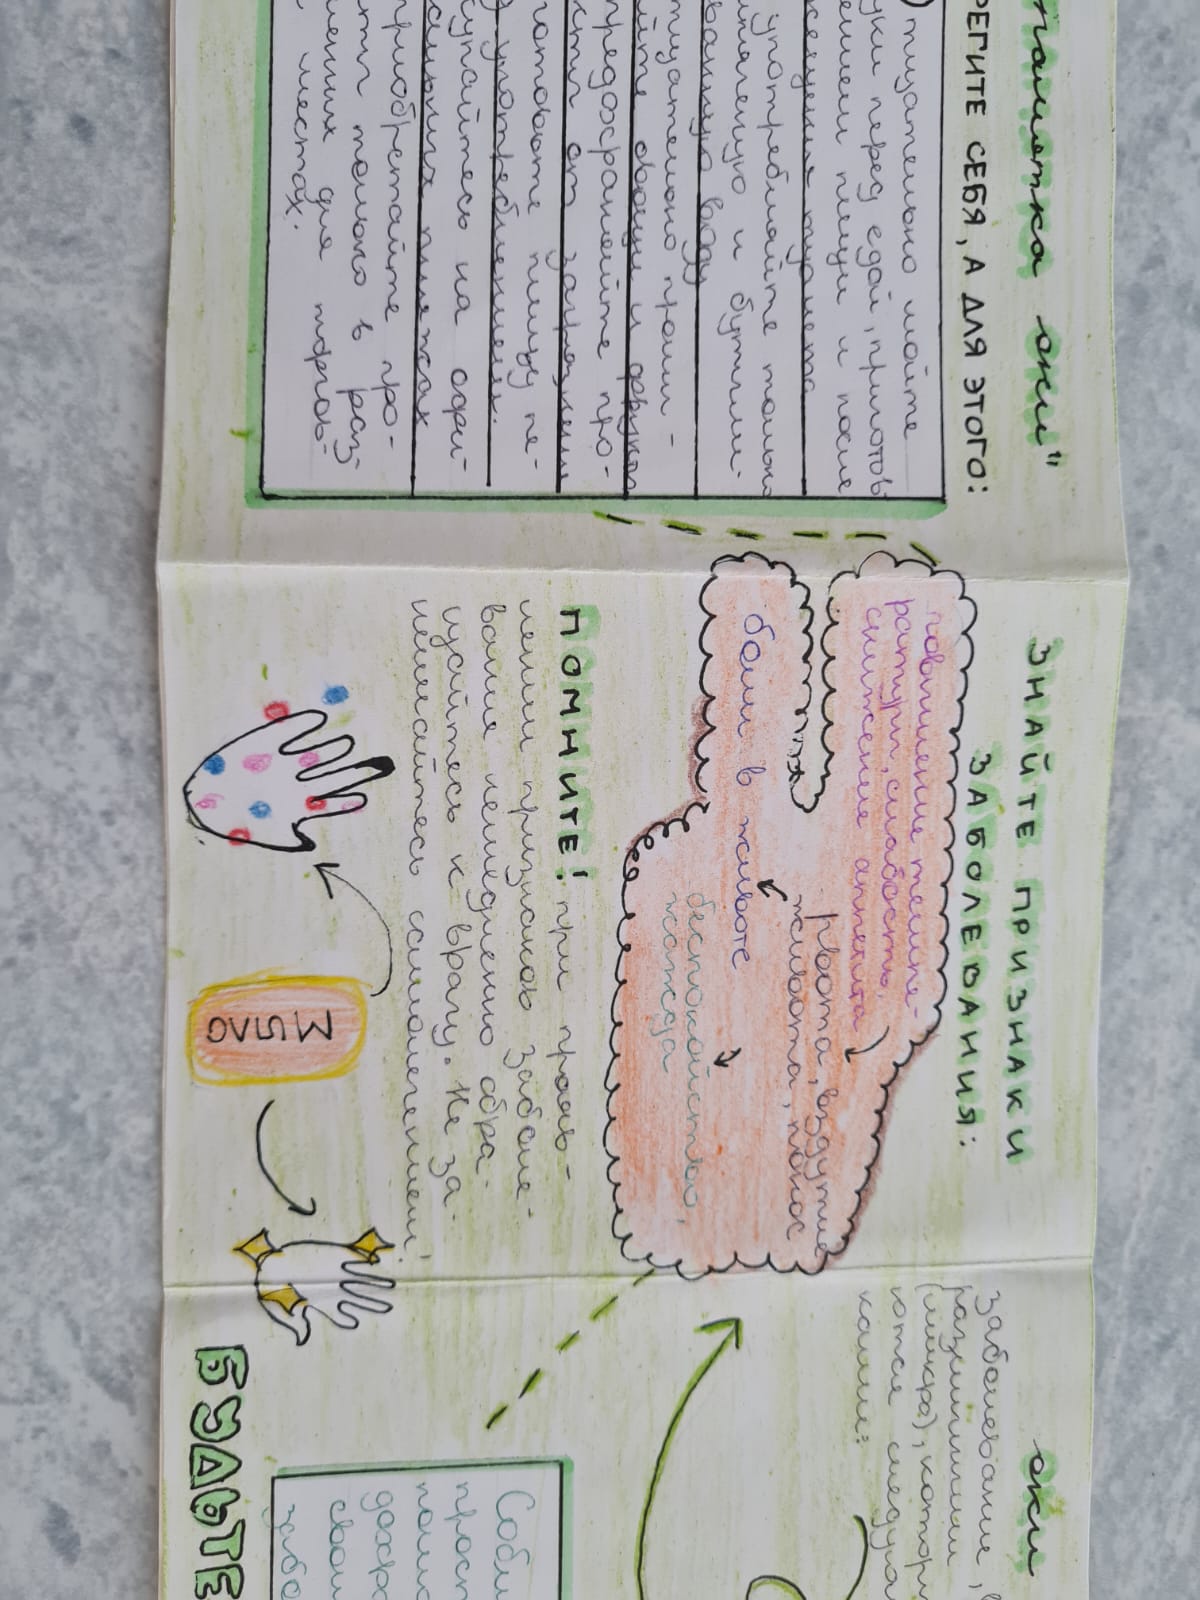 памятка оки"
РЕГИТЕ СЕБЯ, А ДЛЯ ЭТОГО:
) тщательно мойте
уки перед едой, приготов
лением пищи и после
сещения туалета
употребляйте только
пяченую и бутили-
ванную воду
тщательно промы-
йте овощи и фрукты
предохраняйте про-
кты от загрязнения
готовьте пищу пе-
д употреблением.
купайтесь на офи-
сильных пляжах
приобретайте про-
кты только в раз-
ленных для торгов-
местах.
ЗНАЙТЕ ПРИЗНАКИ
ЗАБОЛЕВАНИЯ:
повышение темпе-
ратуры, слабость,
снижение аппетита
рвота, вздутие
живота, понос
боли в животе
беспокойство,
жажда
ПОМНИТЕ! при прояв-
лении признаков заболе-
вания немедленно обра-
щайтесь к врачу. Не за-
нимайтесь самолечением!
МЫЛО
оки
заболевание, в
различными
(микра), котор
ются следую
ками:
Собл
прост
помо
сохра
свои
забо
БУДЬТЕ